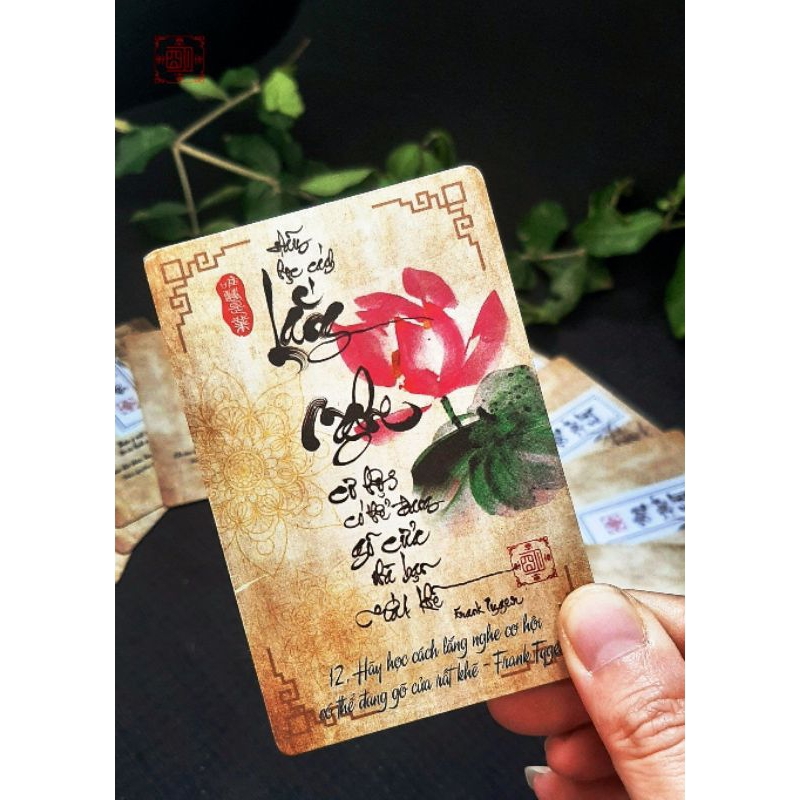 Hãy
học cách
Lắng
Nghe
cơ hội
có thể đang
gõ cửa
nhà bạn
rất khẽ
Frank Tyger
12. Hãy học cách lắng nghe cơ hội
có thể đang gõ cửa rất khẽ - Frank Tyge